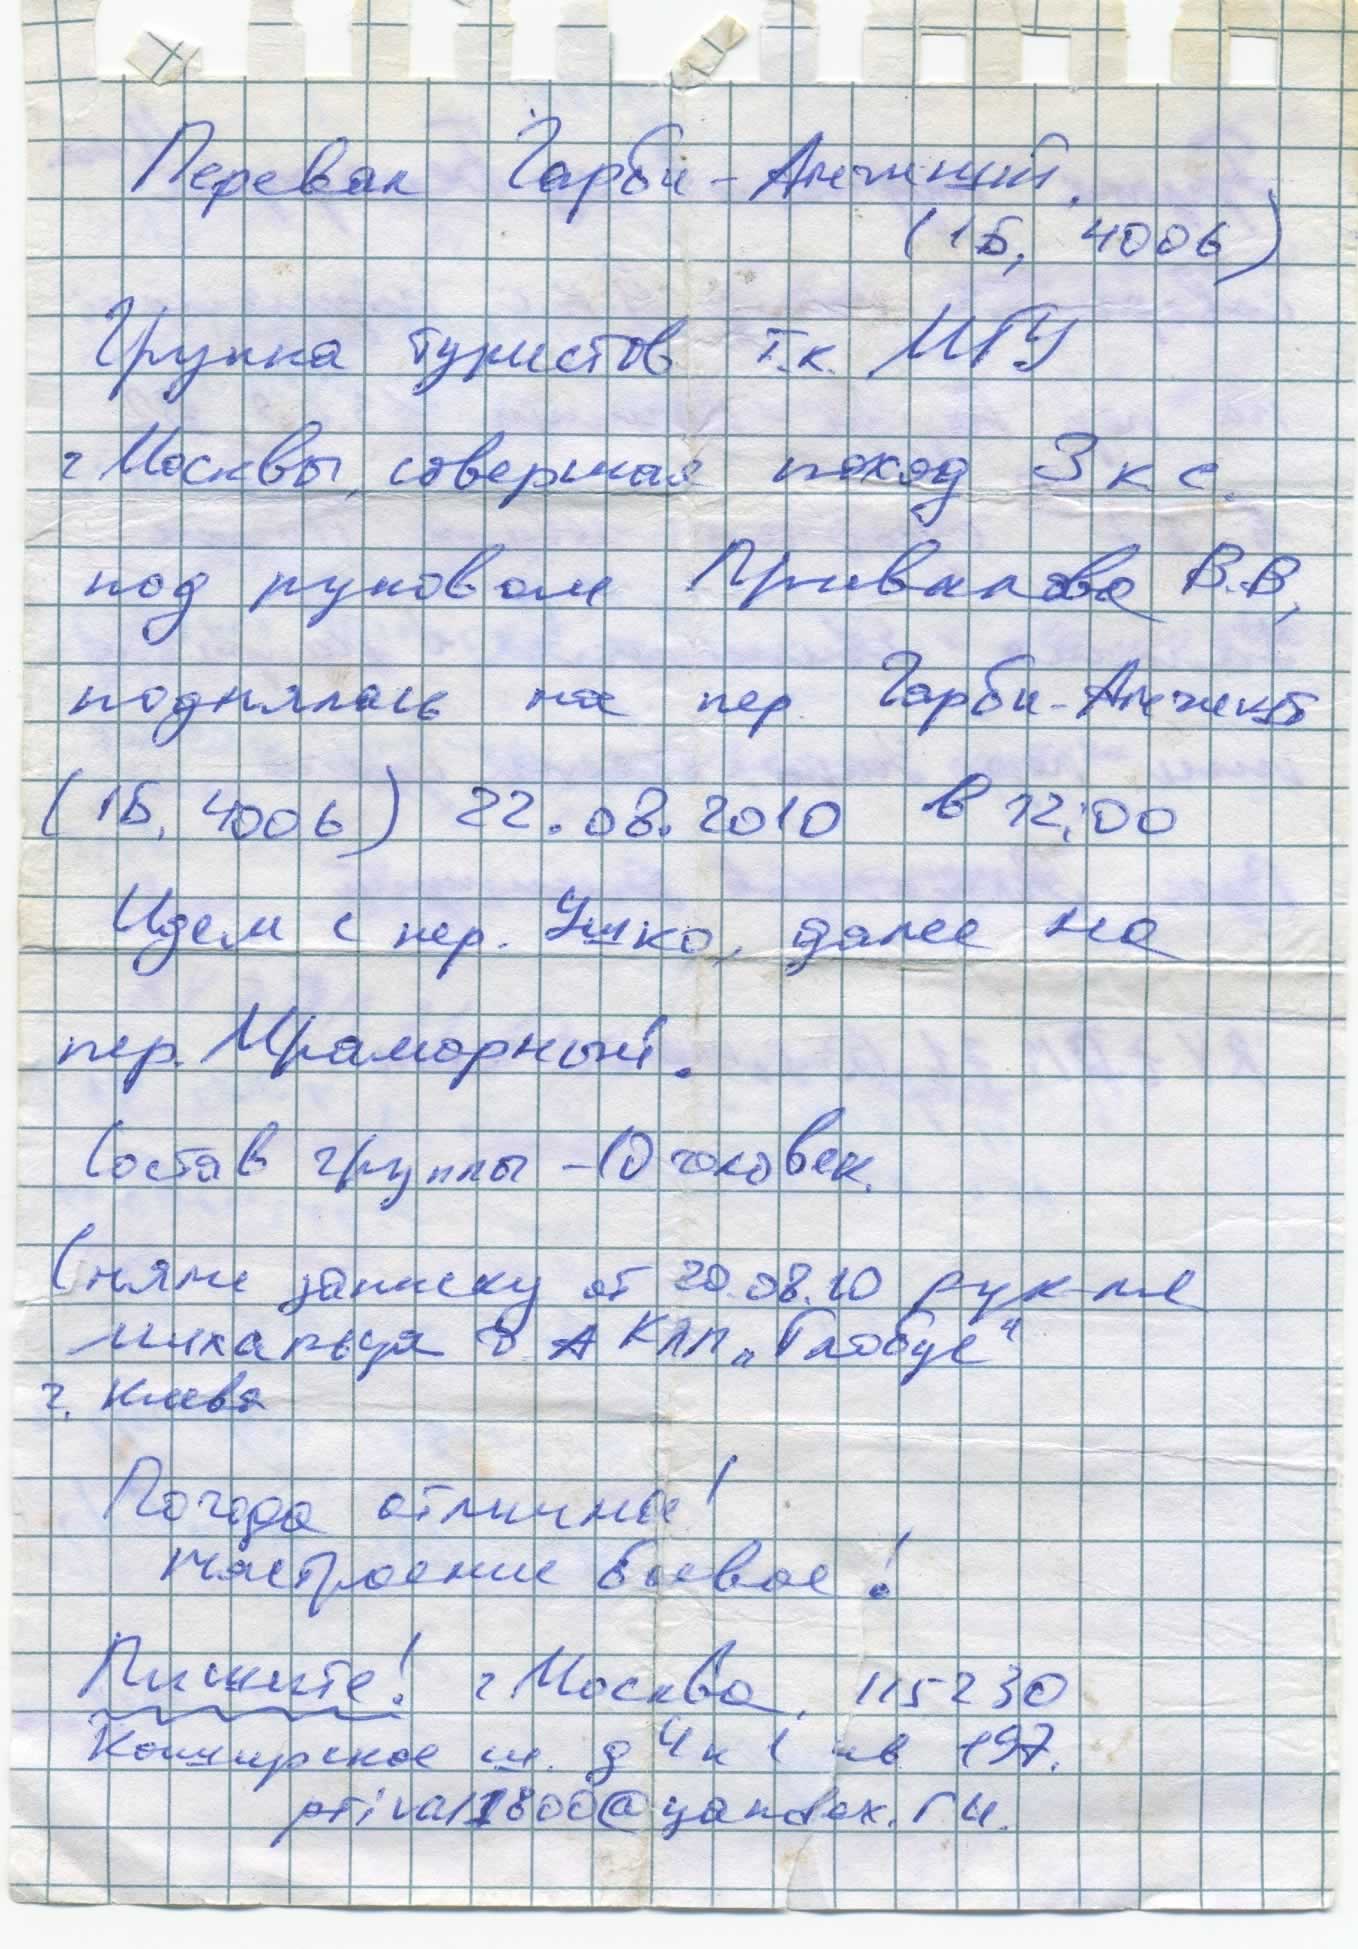 Перевал Гарби-
(1Б, 4006)
Группа туристов т.к. МГУ
г Москвы, совершая поход 3 к с.
под руковом Привалова В.В,
поднялась на пер Гарби-
(1Б, 4006) 22.08.2010 в 12:00
Идем с пер. Ушко, далее на
пер. Мраморный.
Состав группы - 10 человек.
Сняли записку от 20.08.10 рук-ля
КПП „Глобус“
г. Киева
Погода отличная!
Настроение боевое!
Пишите! г Москва, 115230
Каширское ш. д 4 к 1 кв 197.
prival1800@yandex.ru.